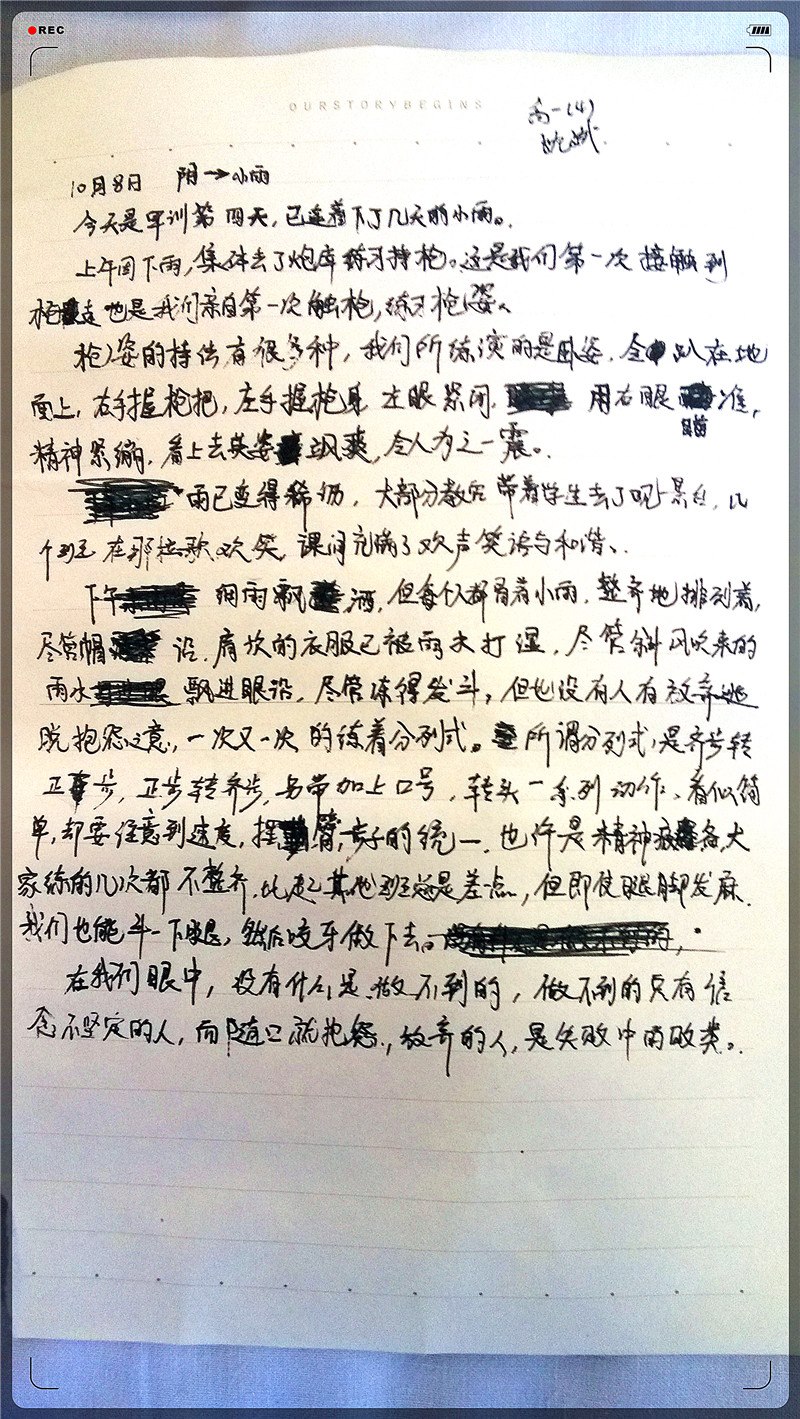 REC
OURSTORYBEGINS
高一(4)
10月8日 阴→小雨
今天是军训第四天,已连着下了几天的小雨。
上午因下雨,集体去了炮库练习持枪。这是我们第一次接触到
枪 也是我们亲自第一次触枪,练习枪姿。
枪姿的持法有很多种,我们所练演的是卧姿,全 趴在地
面上,右手握枪把,左手握枪身 左眼紧闭, 用右眼瞄准,
精神紧绷,看上去英姿飒爽,令人为之一震。
雨已变得稀扔,大部分教官带着学生去了 几
个班在那拉歌欢笑,课间充满了欢声笑语与和谐。
下午 细雨飘洒,但每个人都冒着小雨,整齐地排列着,
尽管帽沿,肩坎的衣服已被雨水打湿,尽管斜风吹来的
雨水 飘进眼沿,尽管冻得发斗,但也没有人有放弃逃
脱抱怨之意,一次又一次的练着分列式。所谓分列式,是齐步转
正步,正步转齐步,另带加上口号,转头一系列动作,看似简
单,却要注意到速度,摆臂,步子的统一,也许是精神疲备,大
家练的几次都不整齐,比起其他班还是差点,但即使腿脚发麻,
我们也能斗一下腿,然后咬牙做下去。
在我们眼中,没有什么是做不到的,做不到的只有信
念不坚定的人,而随口就抱怨,放弃的人,是失败中的败类。